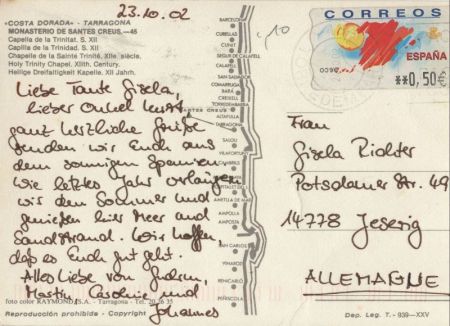 23.10.02
«COSTA DORADA» - TARRAGONA
MONASTERIO DE SANTES CREUS.—46
Capella de la Trinitat. S. XII
Capilla de la Trinidad. S. XII
Chapelle de la Sainte Trinité, XIIe. siècle.
Holy Trinity Chapel, XIIth. Century.
Heilige Dreifaltigkeit Kapelle. XII Jahrh.
Liebe Tante Gisela,
lieber Onkel Kurt
ganz herzliche Grüße
senden wir Euch aus
dem sonnigen Spanien.
Wie letztes Jahr verlängern
wir den Sommer und
genießen hier Meer und
Sandstrand. Wir hoffen,
daß es Euch gut geht.
Alles Liebe von
Martin, Caroline und
Johannes
foto color RAYMOND, S.A. - Tarragona - Tel.
Reproducción prohibida - Copyright
BARCELONA
CUBELLAS
CUNIT
SEGUR DE CALAFELL
CALAFELL
SAN SALVADOR
COMARRUGA
BARÁ
CREIXELL
TORREDEMBARRA
SANTES CREUS
ALTAFULLA
TARRAGONA
SALOU
VILAFORTUNY
CAMBRILS
HOSPITALET DEL I.
AMETLLA DE MAR
AMPOLLA
AMPOSTA
SAN CARLOS
VINAROZ
BENICARLÓ
PEÑISCOLA
CORREOS
ESPAÑA
**0,50€
Frau
Gisela Richter
Potsdamer Str. 49
14778 Jeserig
ALLEMAGNE
Dep. Leg. T. - 939—XXV